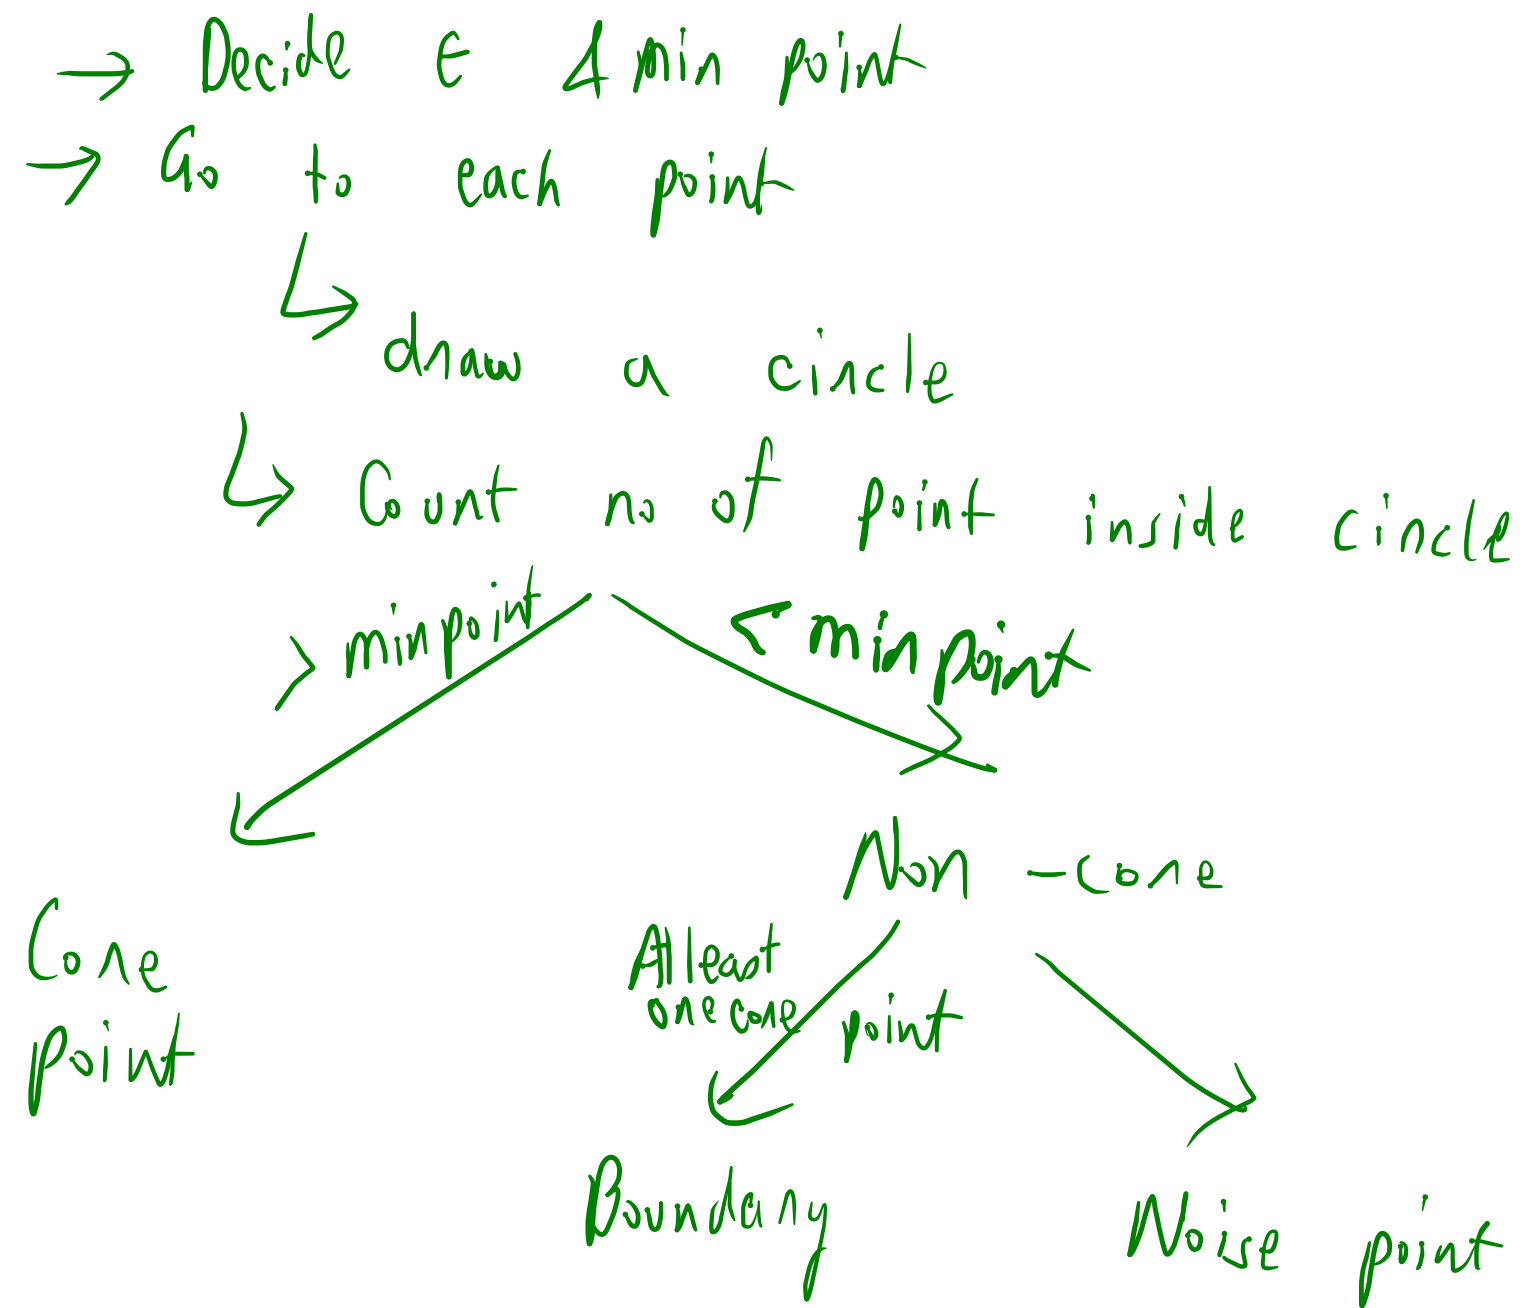 → Decide ε & min point
→ Go to each point
draw a circle
Count no of point inside circle
> minpoint
< minpoint
Non-core
Core
point
Atleast
one core point
Boundary
Noise point